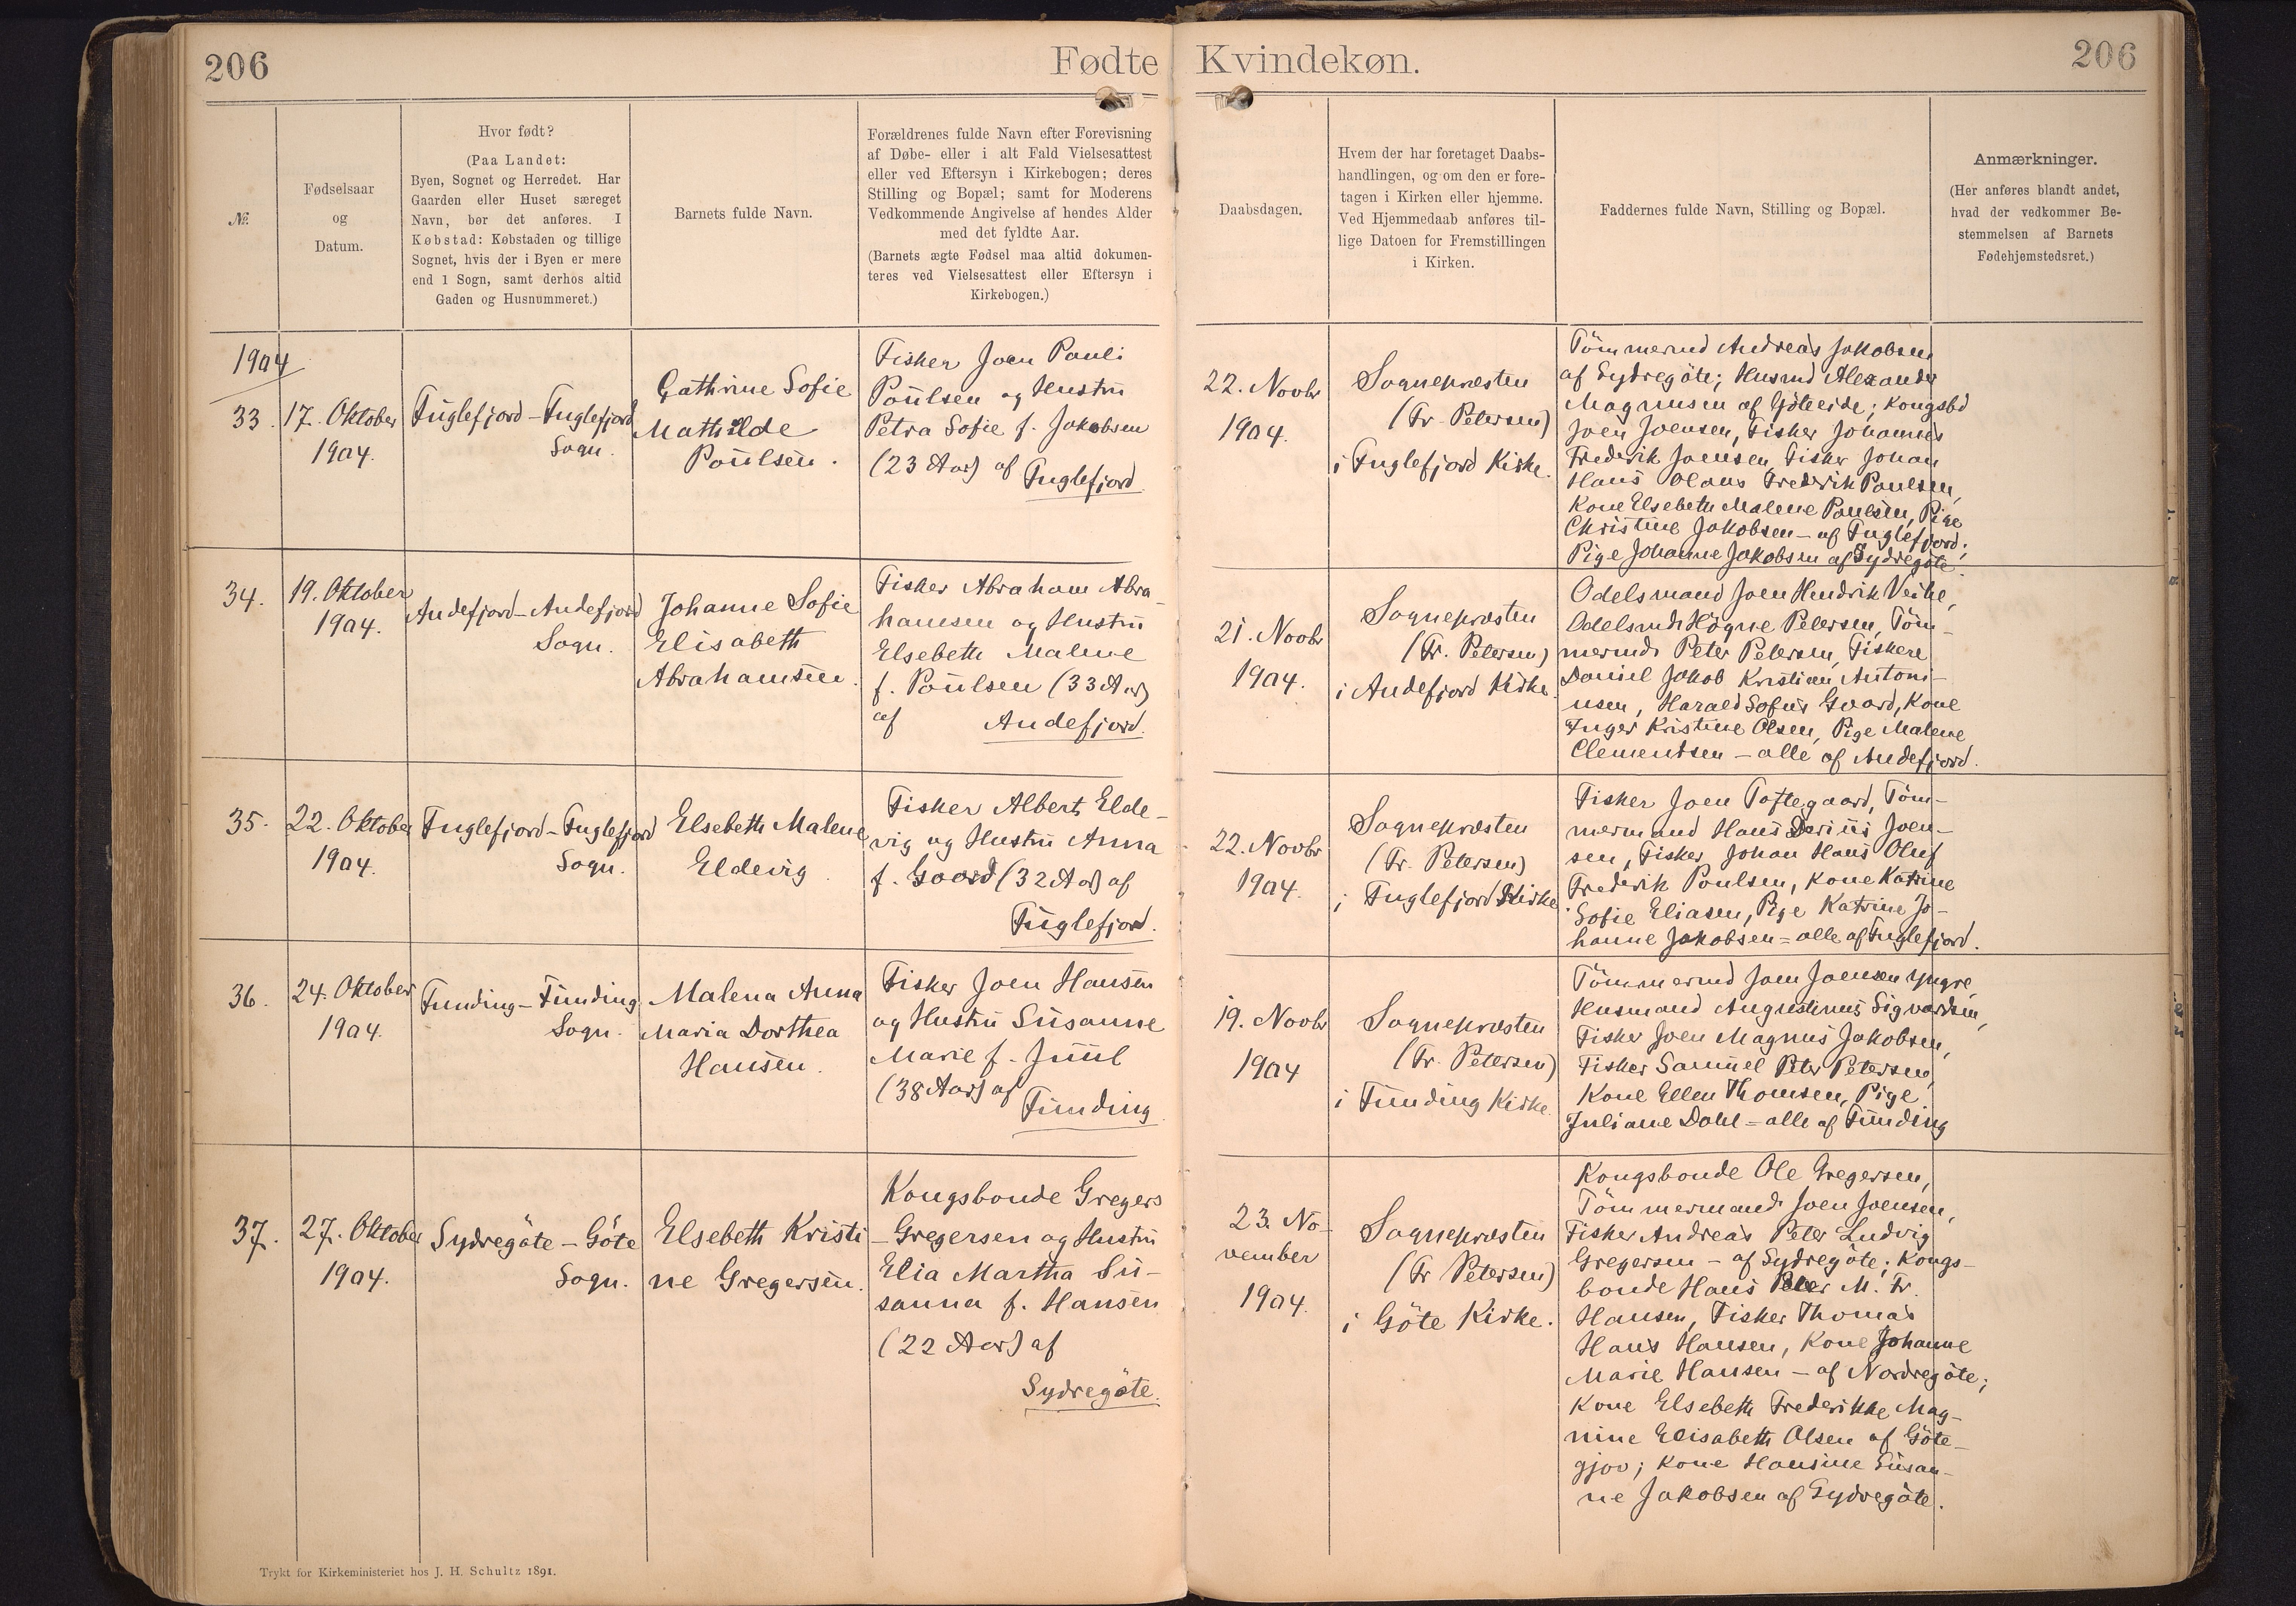 206
Fødte
Kvindekøn.
206
№.
Fødselsaar
og
Datum.
Hvor født?
(Paa Landet:
Byen, Sognet og Herredet. Har
Gaarden eller Huset særeget
Navn, bør det anføres. I
Købstad: Købstaden og tillige
Sognet, hvis der i Byen er mere
end 1 Sogn, samt derhos altid
Gaden og Husnummeret.)
Barnets fulde Navn.
Forældrenes fulde Navn efter Forevisning
af Døbe- eller i alt Fald Vielsesattest
eller ved Eftersyn i Kirkebogen; deres
Stilling og Bopæl; samt for Moderens
Vedkommende Angivelse af hendes Alder
med det fyldte Aar.
(Barnets ægte Fødsel maa altid dokumen-
teres ved Vielsesattest eller Eftersyn i
Kirkebogen.)
Daabsdagen.
Hvem der har foretaget Daabs-
handlingen, og om den er fore-
tagen i Kirken eller hjemme.
Ved Hjemmedaab anføres til-
lige Datoen for Fremstillingen
i Kirken.
Faddernes fulde Navn, Stilling og Bopæl.
Anmærkninger.
(Her anføres blandt andet,
hvad der vedkommer Be-
stemmelsen af Barnets
Fødehjemstedsret.)
1904
33.
17. Oktober
1904.
Fuglefjord - Fuglefjord
Sogn.
Cathrine Sofie
Mathilde
Poulsen.
Fisker Joen Pauli
Poulsen og Hustru
Petra Sofie f. Jakobsen
(23 Aar) af
Fuglefjord
22. Novbr
1904.
Sognepræsten
(Fr. Petersen)
i Fuglefjord Kirke.
Tömmermd Andreas Jakobsen
af Sydregöte; Husmd Alexander
Magnusen af Göteeide; Kongsbd
Joen Joensen, Fisker Johannes
Frederik Joensen, Fisker Johan
Hans Olaus Frederik Poulsen,
Kone Elsebeth Malene Poulsen, Pige
Christine Jakobsen - af Fuglefjord;
Pige Johanne Jakobsen af Sydregöte.
34.
19. Oktober
1904.
Andefjord - Andefjord
Sogn.
Johanne Sofie
Elisabeth
Abrahamsen.
Fisker Abraham Abra-
hamsen og Hustru
Elsebeth Malene
f. Poulsen (33 Aar)
af Andefjord.
21. Novbr
1904.
Sognepræsten
(Fr. Petersen)
i Andefjord Kirke.
Odelsmand Joen Hendrik Veihe,
Odelsmd Högne Petersen, Töm-
mermd Peter Petersen, Fiskere
Daniel Jakob Kristian Antoni-
usen, Harald Sofus Goard, Kone
Inger Kristine Olsen, Pige Malene
Clementsen - alle af Andefjord.
35.
22. Oktober
1904.
Fuglefjord - Fuglefjord
Sogn.
Elsebeth Malene
Eldevig.
Fisker Albert Elde-
vig og Hustru Anna
f. Goord (32 Aar) af
Fuglefjord.
22. Novbr
1904.
Sognepræsten
(Fr. Petersen)
i Fuglefjord Kirke
Fisker Joen Toftegaard, Töm-
mermand Hans Darius Joen-
sen, Fisker Johan Hans Oluf
Frederik Poulsen, Kone Katrine
Sofie Eliasen, Pige Katrine Jo-
hanne Jakobsen = alle af Fuglefjord.
36.
24. Oktober
1904.
Funding - Funding
Sogn.
Malena Anna
Maria Dorthea
Hansen.
Fisker Joen Hansen
og Hustru Susanne
Marie f. Juul
(38 Aar) af
Funding
19. Novbr
1904
Sognepræsten
(Fr. Petersen)
i Funding Kirke
Tömmermd Joen Joensen yngre,
Husmand Augustinus Sigvardsen,
Fisker Joen Magnus Jakobsen,
Fisker Samuel Peter Petersen,
Kone Ellen Thomsen, Pige
Juliane Dahl = alle af Funding
37.
27. Oktober
1904.
Sydregöte - Göte
Sogn.
Elsebeth Kristi
ne Gregersen.
Kongsbonde Gregers
Gregersen og Hustru
Elia Martha Su-
sanna f. Hansen
(22 Aar) af
Sydregöte.
23. No-
vember
1904.
Sognepræsten
(Fr Petersen)
i Göte Kirke.
Kongsbonde Ole Gregersen,
Tömmermand Joen Joensen,
Fisker Andreas Peter Ludvig
Gregersen - af Sydregöte; Kongs-
bonde Hans Peter M. Fr.
Hansen, Fisker Thomas
Hans Hansen, Kone Johanne
Marie Hansen - af Nordregöte;
Kone Elsebeth Frederikke Mag-
nine Elisabeth Olsen af Göte-
gjov; Kone Hansine Susan-
ne Jakobsen af Sydregöte.
Trykt for Kirkeministeriet hos J. H. Schultz 1891.